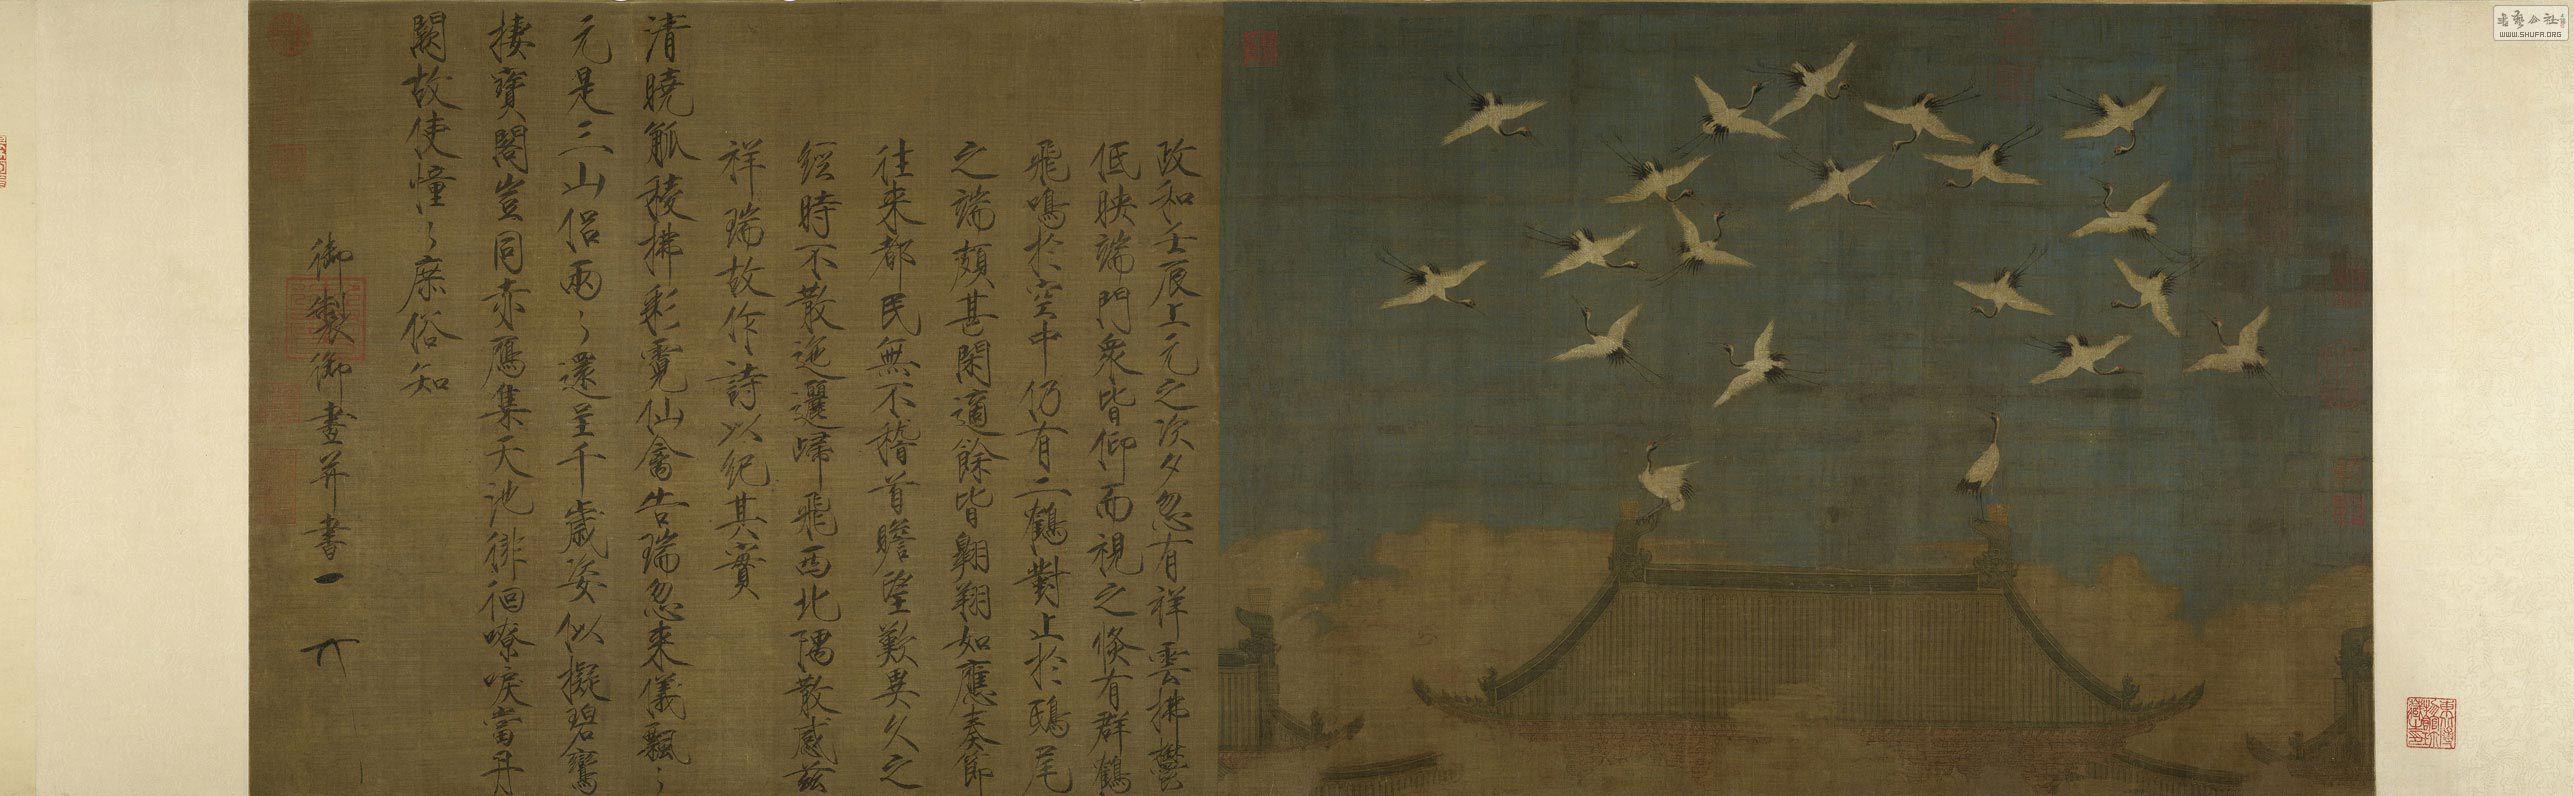 政和壬辰上元之次夕忽有祥雲拂鬱
低映端門衆皆仰而視之倐有群鶴
飛鳴於空中仍有二鶴對止於鴟尾
之端頗甚閑適餘皆翱翔如應奏節
往来都民無不稽首瞻望歎異久之
經時不散迤邐歸飛西北隅散感兹
祥瑞故作詩以紀其實
清曉觚稜拂彩霓仙禽告瑞忽来儀飄〻
元是三山侣兩〻還呈千歲姿似擬碧鸞
棲寶閣豈同赤鴈集天池徘徊嘹唳當丹
闕故使憧〻庶俗知
御製御畫并書
WWW.SHUFA.ORG